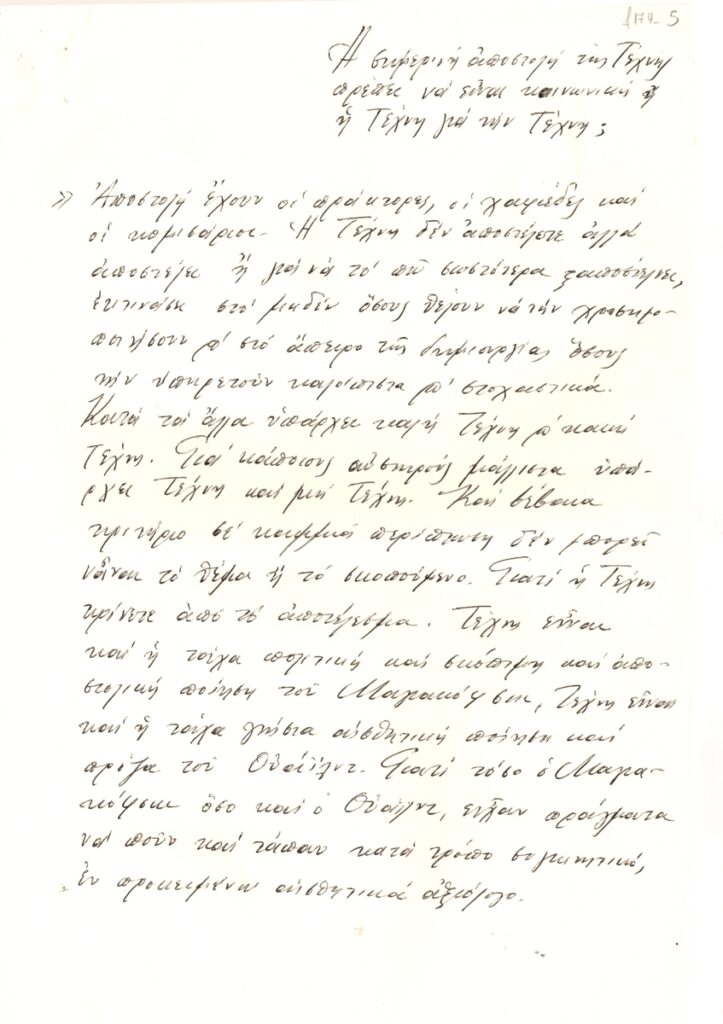 5
Ἡ σημερινή ἀποστολή τῆς Τέχνης
πρέπει νά εἶναι κοινωνική ἤ
ἡ Τέχνη γιά τήν Τέχνη;
» Ἀποστολή ἔχουν οἱ πράκτορες, οἱ χαφιέδες καί
οἱ κομισάριοι. Ἡ Τέχνη δέν ἀποστέλεται ἀλλά
ἀποστέλει ἤ γιά νά τό πῶ σωστότερα ξαποστέλνει,
ἐκτινάσει στό μηδέν ὅσους θέλουν νά τήν χρησιμο-
ποιήσουν κ' στό ἄπειρο τῆς δημιουργίας ὅσους
τήν ὑπηρετοῦν καλόπιστα κ' στοχαστικά.
Κατά τά ἄλλα ὑπάρχει καλή Τέχνη κ' κακή
Τέχνη. Γιά κάποιους αὐστηρούς μάλιστα ὑπά-
ρχει Τέχνη καί μή Τέχνη. Καί βέβαια
κριτήριο σέ καμμιά περίπτωση δέν μπορεῖ
νἆναι τό θέμα ἤ τό σκοπούμενο. Γιατί ἡ Τέχνη
κρίνεται ἀπό τό ἀποτέλεσμα. Τέχνη εἶναι
καί ἡ τάχα πολιτική καί σκόπιμη καί ἀπο-
στολική ποίηση τοῦ Μαγιακόφσκι, Τέχνη εἶναι
καί ἡ τάχα γνήσια αἰσθητική ποίηση καί
πρόζα τοῦ Οὐάϊλντ. Γιατί τόσο ὁ Μαγια-
κόφσκι ὅσο καί ὁ Οὐάϊλντ, εἶχαν πράγματα
νά ποῦν καί τἄπαν κατά τρόπο συγκινητικό,
ἐν προκειμένω αἰσθητικά ἀξιόλογο.